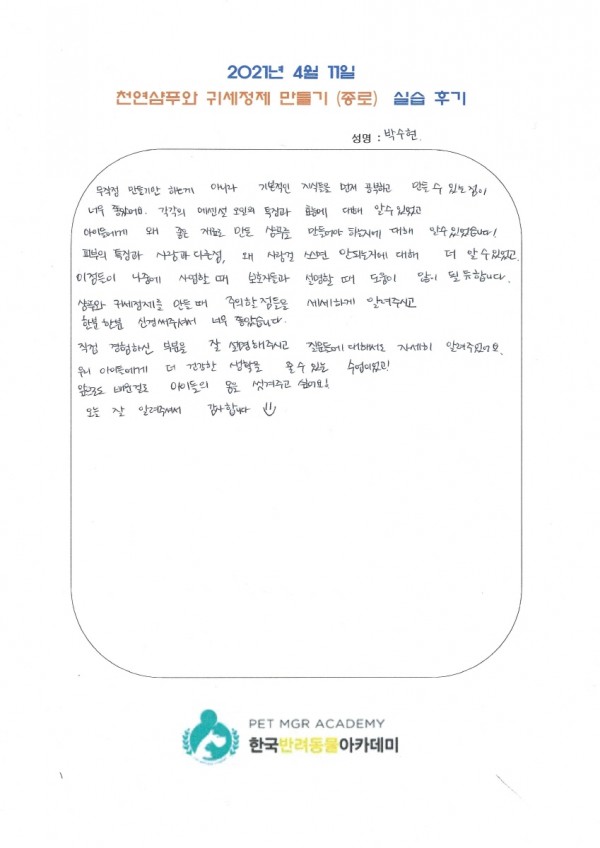 2021년 4월 11일
천연샴푸와 귀세정제 만들기 (종로) 실습 후기
성명 : 박수현
무작정 만들기만 하는게 아니라 기본적인 지식들을 먼저 공부하고 만들 수 있는점이
너무 좋았어요. 각각의 에센셜 오일의 특징과 효능에 대해 알수있었고
아이들에게 왜 좋은 재료로 만든 샴푸로 만들어야 하는지에 대해 알수있었습니다!
피부의 특징과 사람과 다른점, 왜 사람껄 쓰면 안되는지에 대해 더 알 수 있었고.
이점들이 나중에 사업할 때 보호자들과 설명할 때 도움이 많이 될 듯합니다.
샴푸와 귀세정제를 만들 때 주의할 점들을 세세하게 알려주시고
한분 한분 신경써주셔서 너무 좋았습니다.
직접 경험하신 부분을 잘 설명해주시고 질문들에 대해서도 자세히 알려주셨어요.
우리 아이들에게 더 건강한 생활을 줄 수 있는 수업이었고!
앞으로도 배운걸로 아이들의 몸을 씻겨주고 싶어요!
오늘 잘 알려주셔서 감사합니다
PET MGR ACADEMY
한국반려동물아카데미